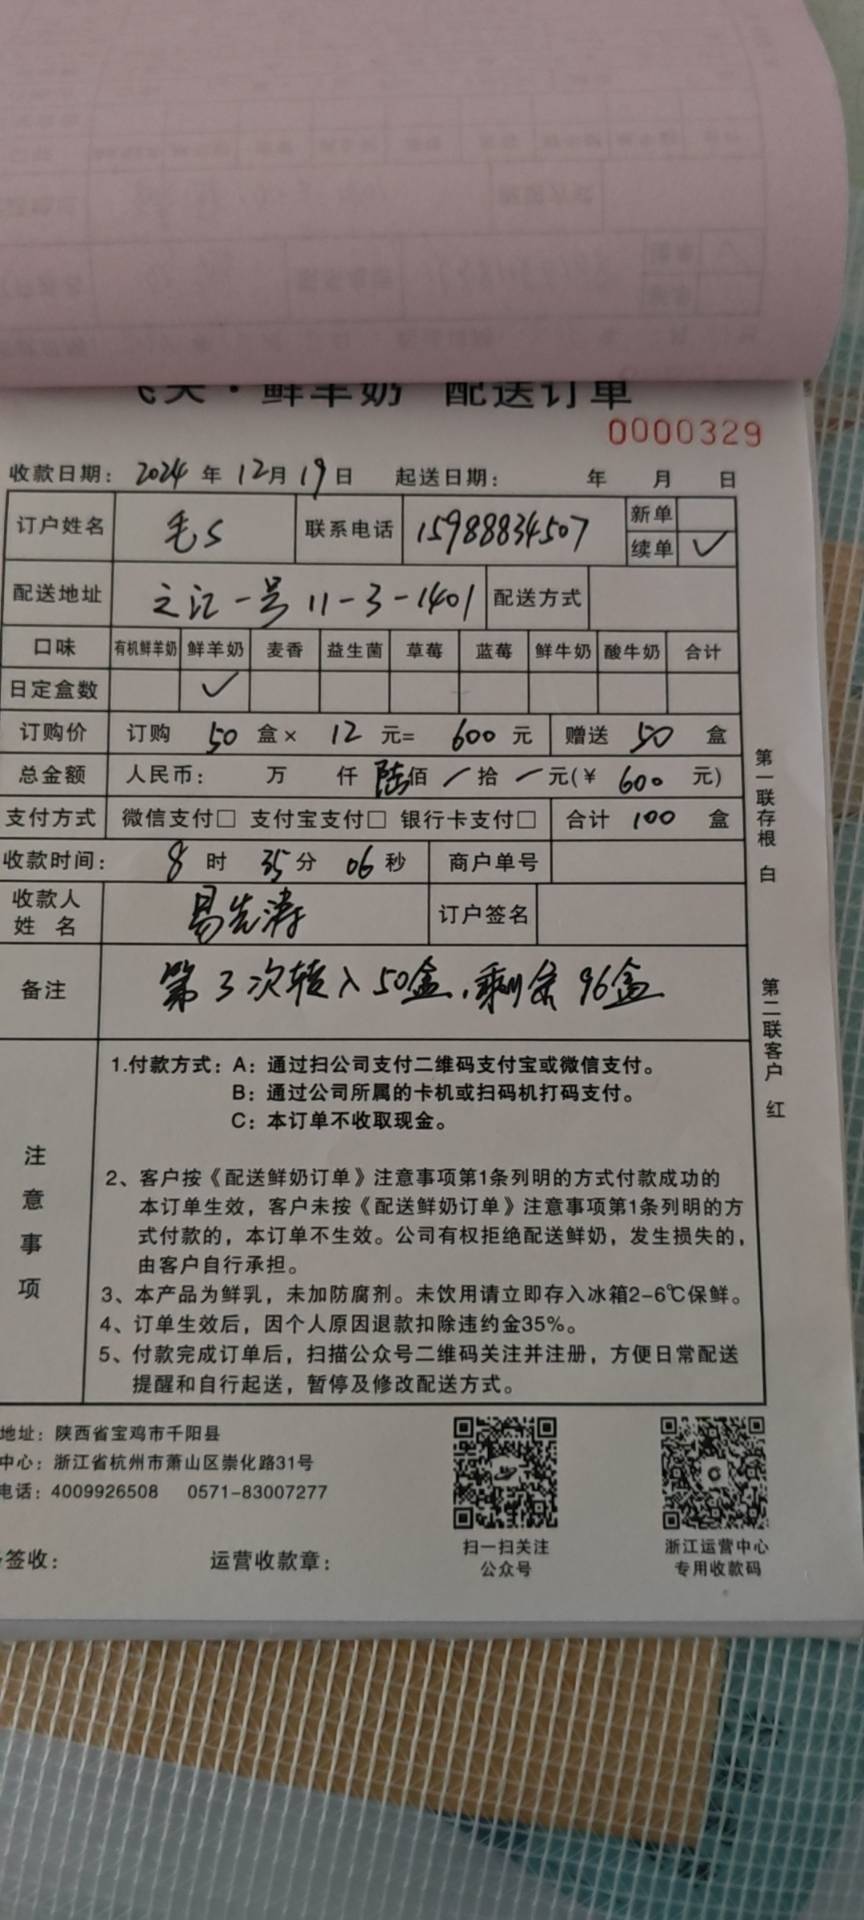 飞天·鲜羊奶 配送订单
0000329
收款日期: 2024 年 12月 19日 起送日期: 年 月 日
订户姓名 毛S 联系电话 15988834507 新单
续单 ✓
配送地址 之江一号 11-3-1401 配送方式
口味 有机鲜羊奶 鲜羊奶 麦香 益生菌 草莓 蓝莓 鲜牛奶 酸牛奶 合计
日定盒数 ✓
订购价 订购 50 盒× 12 元= 600 元 赠送 50 盒
总金额 人民币: 万 仟 陆佰 / 拾 / 元(¥ 600 元)
支付方式 微信支付□ 支付宝支付□ 银行卡支付□ 合计 100 盒
收款时间: 8 时 35分 06秒 商户单号
收款人姓名 易先涛 订户签名
备注 第3次转入50盒,剩余96盒
注意事项
1.付款方式: A: 通过扫公司支付二维码支付宝或微信支付。
B: 通过公司所属的卡机或扫码机打码支付。
C: 本订单不收取现金。
2、客户按《配送鲜奶订单》注意事项第1条列明的方式付款成功的
本订单生效,客户未按《配送鲜奶订单》注意事项第1条列明的方
式付款的,本订单不生效。公司有权拒绝配送鲜奶,发生损失的,
由客户自行承担。
3、本产品为鲜乳,未加防腐剂。未饮用请立即存入冰箱2-6℃保鲜。
4、订单生效后,因个人原因退款扣除违约金35%。
5、付款完成订单后,扫描公众号二维码关注并注册,方便日常配送
提醒和自行起送,暂停及修改配送方式。
第一联存根 白
第二联客户 红
地址: 陕西省宝鸡市千阳县
中心: 浙江省杭州市萧山区崇化路31号
电话: 4009926508 0571-83007277
签收: 运营收款章:
扫一扫关注
公众号
浙江运营中心
专用收款码